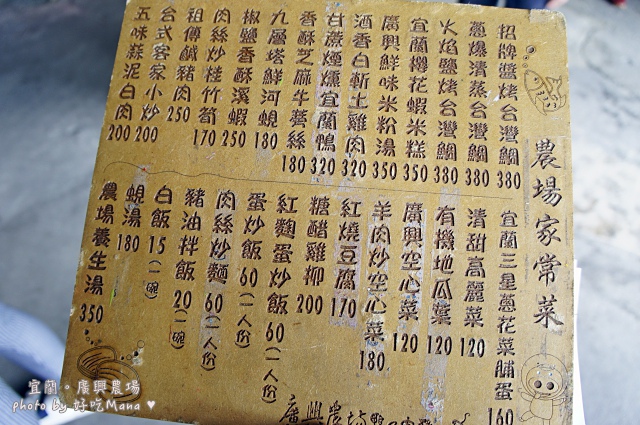 農場家常菜
招牌醬烤台灣鯛 380
蔥爆清蒸台灣鯛 380
火焰鹽烤台灣鯛 380
宜蘭櫻花蝦米糕 350
廣興鮮味米粉湯 350
酒香白斬土雞肉 320
甘蔗煙燻宜蘭鴨 320
香酥芝麻牛蒡絲 180
九層塔鮮河蜆 180
椒鹽香酥溪蝦 250
肉絲炒桂竹筍 170
祖傳鹹豬肉 250
台式客家小炒 200
五味蒜泥白肉 200
宜蘭三星蔥花菜脯蛋 160
清甜高麗菜 120
有機地瓜葉 120
廣興空心菜 120
羊肉炒空心菜 180
紅燒豆腐 170
糖醋雞柳 200
紅麴蛋炒飯 60(一人份)
蛋炒飯 60(一人份)
肉絲炒麵 60(一人份)
豬油拌飯 20(一碗)
白飯 15(一碗)
蜆湯 180
農場養生湯 350
廣興農場
宜蘭。廣興農場
photo by 好吃Mana ♥